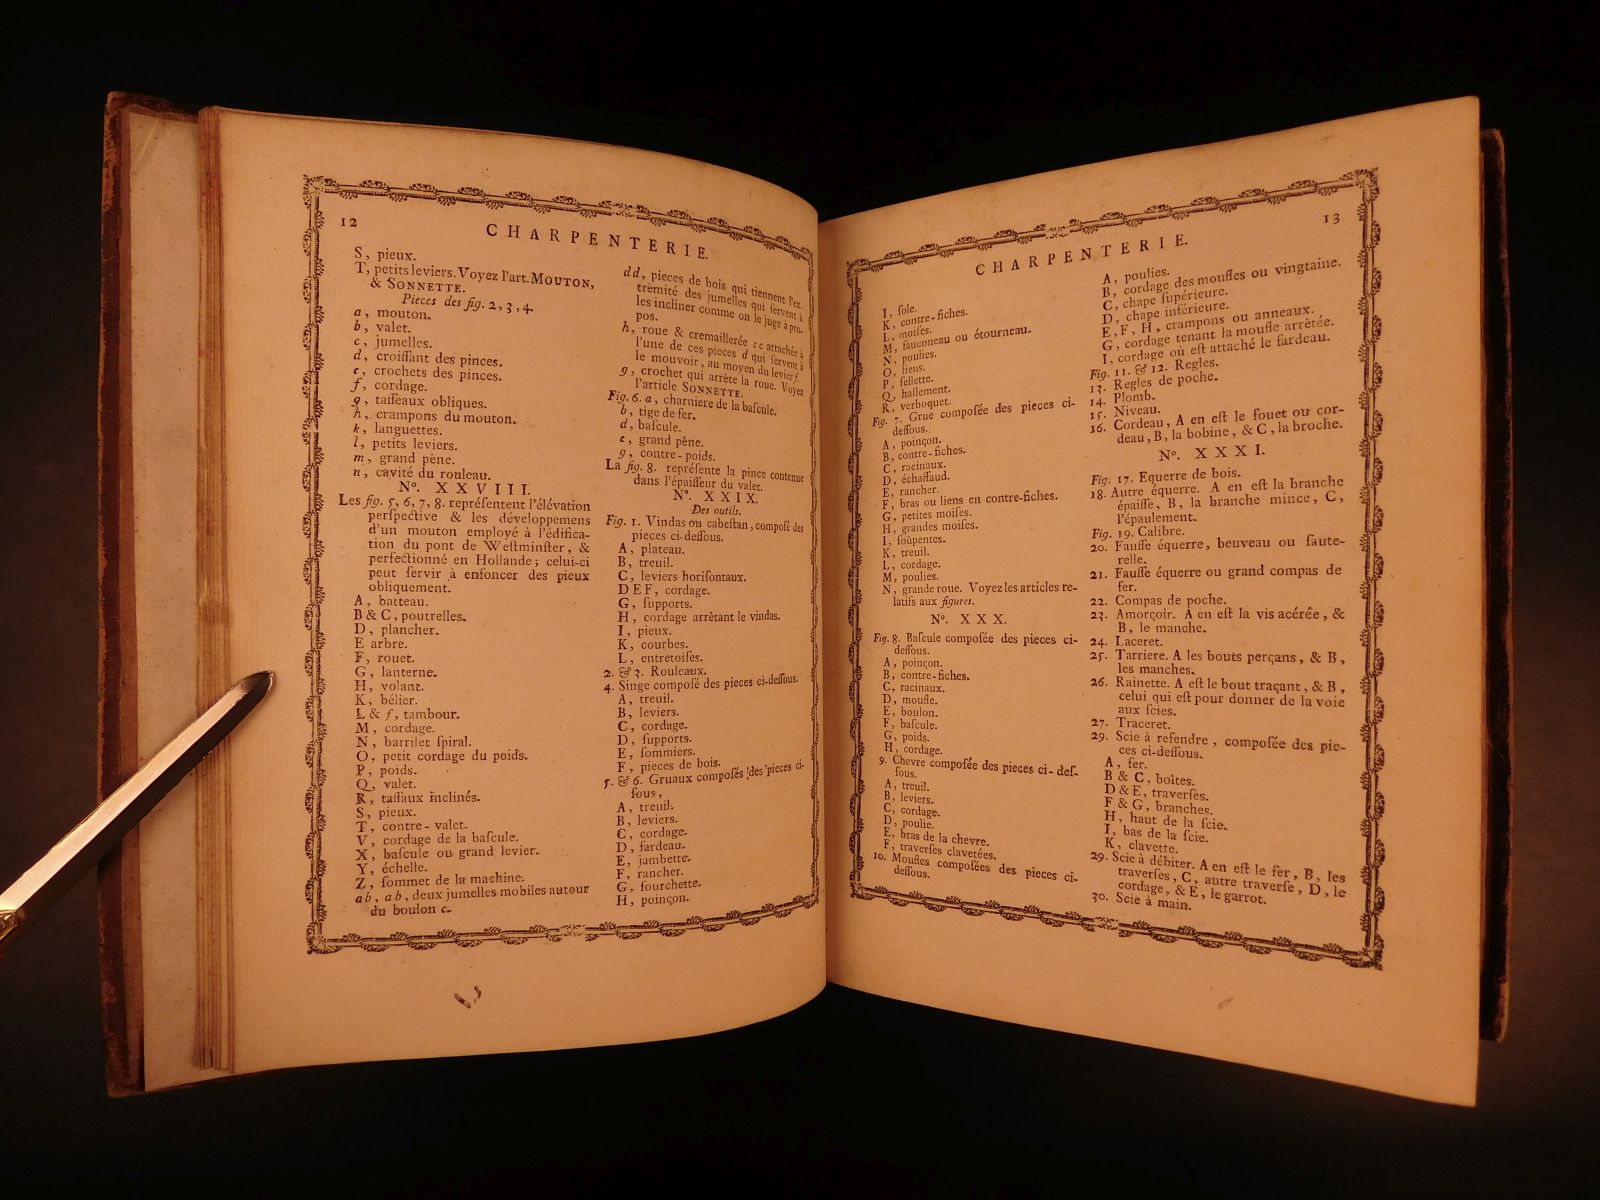 12
CHARPENTERIE.
S, pieux.
T, petits leviers. Voyez l'art. MOUTON,
& SONNETTE.
Pieces des fig. 2, 3, 4.
a, mouton.
b, valet.
c, jumelles.
d, croiſſant des pinces.
e, crochets des pinces.
f, cordage.
g, taſſeaux obliques.
h, crampons du mouton.
k, languettes.
l, petits leviers.
m, grand pêne.
n, cavité du rouleau.
N°. XXVIII.
Les fig. 5, 6, 7, 8. repréſentent l'élévation
perſpective & les développemens
d'un mouton employé à l'édifica-
tion du pont de Weſtminſter, &
perfectionné en Hollande; celui-ci
peut ſervir à enfoncer des pieux
obliquement.
A, batteau.
B & C, poutrelles.
D, plancher.
E arbre.
F, rouet.
G, lanterne.
H, volant.
K, bélier.
L & f, tambour.
M, cordage.
N, barrilet ſpiral.
O, petit cordage du poids.
P, poids.
Q, valet.
R, taſſaux inclinés.
S, pieux.
T, contre-valet.
V, cordage de la baſcule.
X, baſcule ou grand levier.
Y, échelle.
Z, ſommet de la machine.
ab, ab, deux jumelles mobiles autour
du boulon c.
dd, pieces de bois qui tiennent l'ex-
trêmité des jumelles qui ſervent à
les incliner comme on le juge à pro-
pos.
h, roue & cremaillerée cc attachée à
l'une de ces pieces d qui ſervent à
le mouvoir, au moyen du levier f.
g, crochet qui arrête la roue. Voyez
l'article SONNETTE.
Fig. 6. a, charniere de la baſcule.
b, tige de fer.
d, baſcule.
e, grand pêne.
g, contre-poids.
La fig. 8. repréſente la pince contenue
dans l'épaiſſeur du valet.
N°. XXIX.
Des outils.
Fig. 1. Vindas ou cabeſtan, compoſé des
pieces ci-deſſous.
A, plateau.
B, treuil.
C, leviers horiſontaux.
DEF, cordage.
G, ſupports.
H, cordage arrêtant le vindas.
I, pieux.
K, courbes.
L, entretoiſes.
2. & 3. Rouleaux.
4. Singe compoſé des pieces ci-deſſous.
A, treuil.
B, leviers.
C, cordage.
D, ſupports.
E, ſommiers.
F, pieces de bois.
5. & 6. Gruaux compoſés des pieces ci-
ſous,
A, treuil.
B, leviers.
C, cordage.
D, fardeau.
E, jambette.
F, rancher.
G, fourchette.
H, poinçon.
CHARPENTERIE.
13
I, ſole.
K, contre-fiches.
L, moiſes.
M, fauconeau ou étourneau.
N, poulies.
O, liens.
P, ſellette.
Q, hallement.
R, verboquet.
Fig. 7. Grue compoſée des pieces ci-
deſſous.
A, poinçon.
B, contre-fiches.
C, racinaux.
D, échaffaud.
E, rancher.
F, bras ou liens en contre-fiches.
G, petites moiſes.
H, grandes moiſes.
I, ſoupentes.
K, treuil.
L, cordage.
M, poulies.
N, grande roue. Voyez les articles re-
latifs aux figures.
N°. XXX.
Fig. 8. Baſcule compoſée des pieces ci-
deſſous.
A, poinçon.
B, contre-fiches.
C, racinaux.
D, moufle.
E, boulon.
F, baſcule.
G, poids.
H, cordage.
9. Chevre compoſée des pieces ci-deſ-
ſous.
A, treuil.
B, leviers.
C, cordage.
D, poulie.
E, bras de la chevre.
F, traverſes clavetées.
10. Moufles compoſées des pieces ci-
deſſous.
A, poulies.
B, cordage des moufles ou vingtaine.
C, chape ſupérieure.
D, chape inférieure.
E, F, H, crampons ou anneaux.
G, cordage tenant la moufle arrêtée.
I, cordage où eſt attaché le fardeau.
Fig. 11. & 12. Regles.
13. Regles de poche.
14. Plomb.
15. Niveau.
16. Cordeau, A en eſt le fouet ou cor-
deau, B, la bobine, & C, la broche.
N°. XXXI.
Fig. 17. Equerre de bois.
18. Autre équerre. A en eſt la branche
épaiſſe, B, la branche mince, C,
l'épaulement.
Fig. 19. Calibre.
20. Fauſſe équerre, beuveau ou ſaute-
relle.
21. Fauſſe équerre ou grand compas de
fer.
22. Compas de poche.
23. Amorçoir. A en eſt la vis acérée, &
B, le manche.
24. Laceret.
25. Tarriere. A les bouts perçans, & B,
les manches.
26. Rainette. A eſt le bout traçant, & B,
celui qui eſt pour donner de la voie
aux ſcies.
27. Traceret.
29. Scie à refendre, compoſée des pie-
ces ci-deſſous.
A, fer.
B & C, boîtes.
D & E, traverſes.
F & G, branches.
H, haut de la ſcie.
I, bas de la ſcie.
K, clavette.
29. Scie à débiter. A en eſt le fer, B, les
traverſes, C, autre traverſe, D, le
cordage, & E, le garrot.
30. Scie à main.